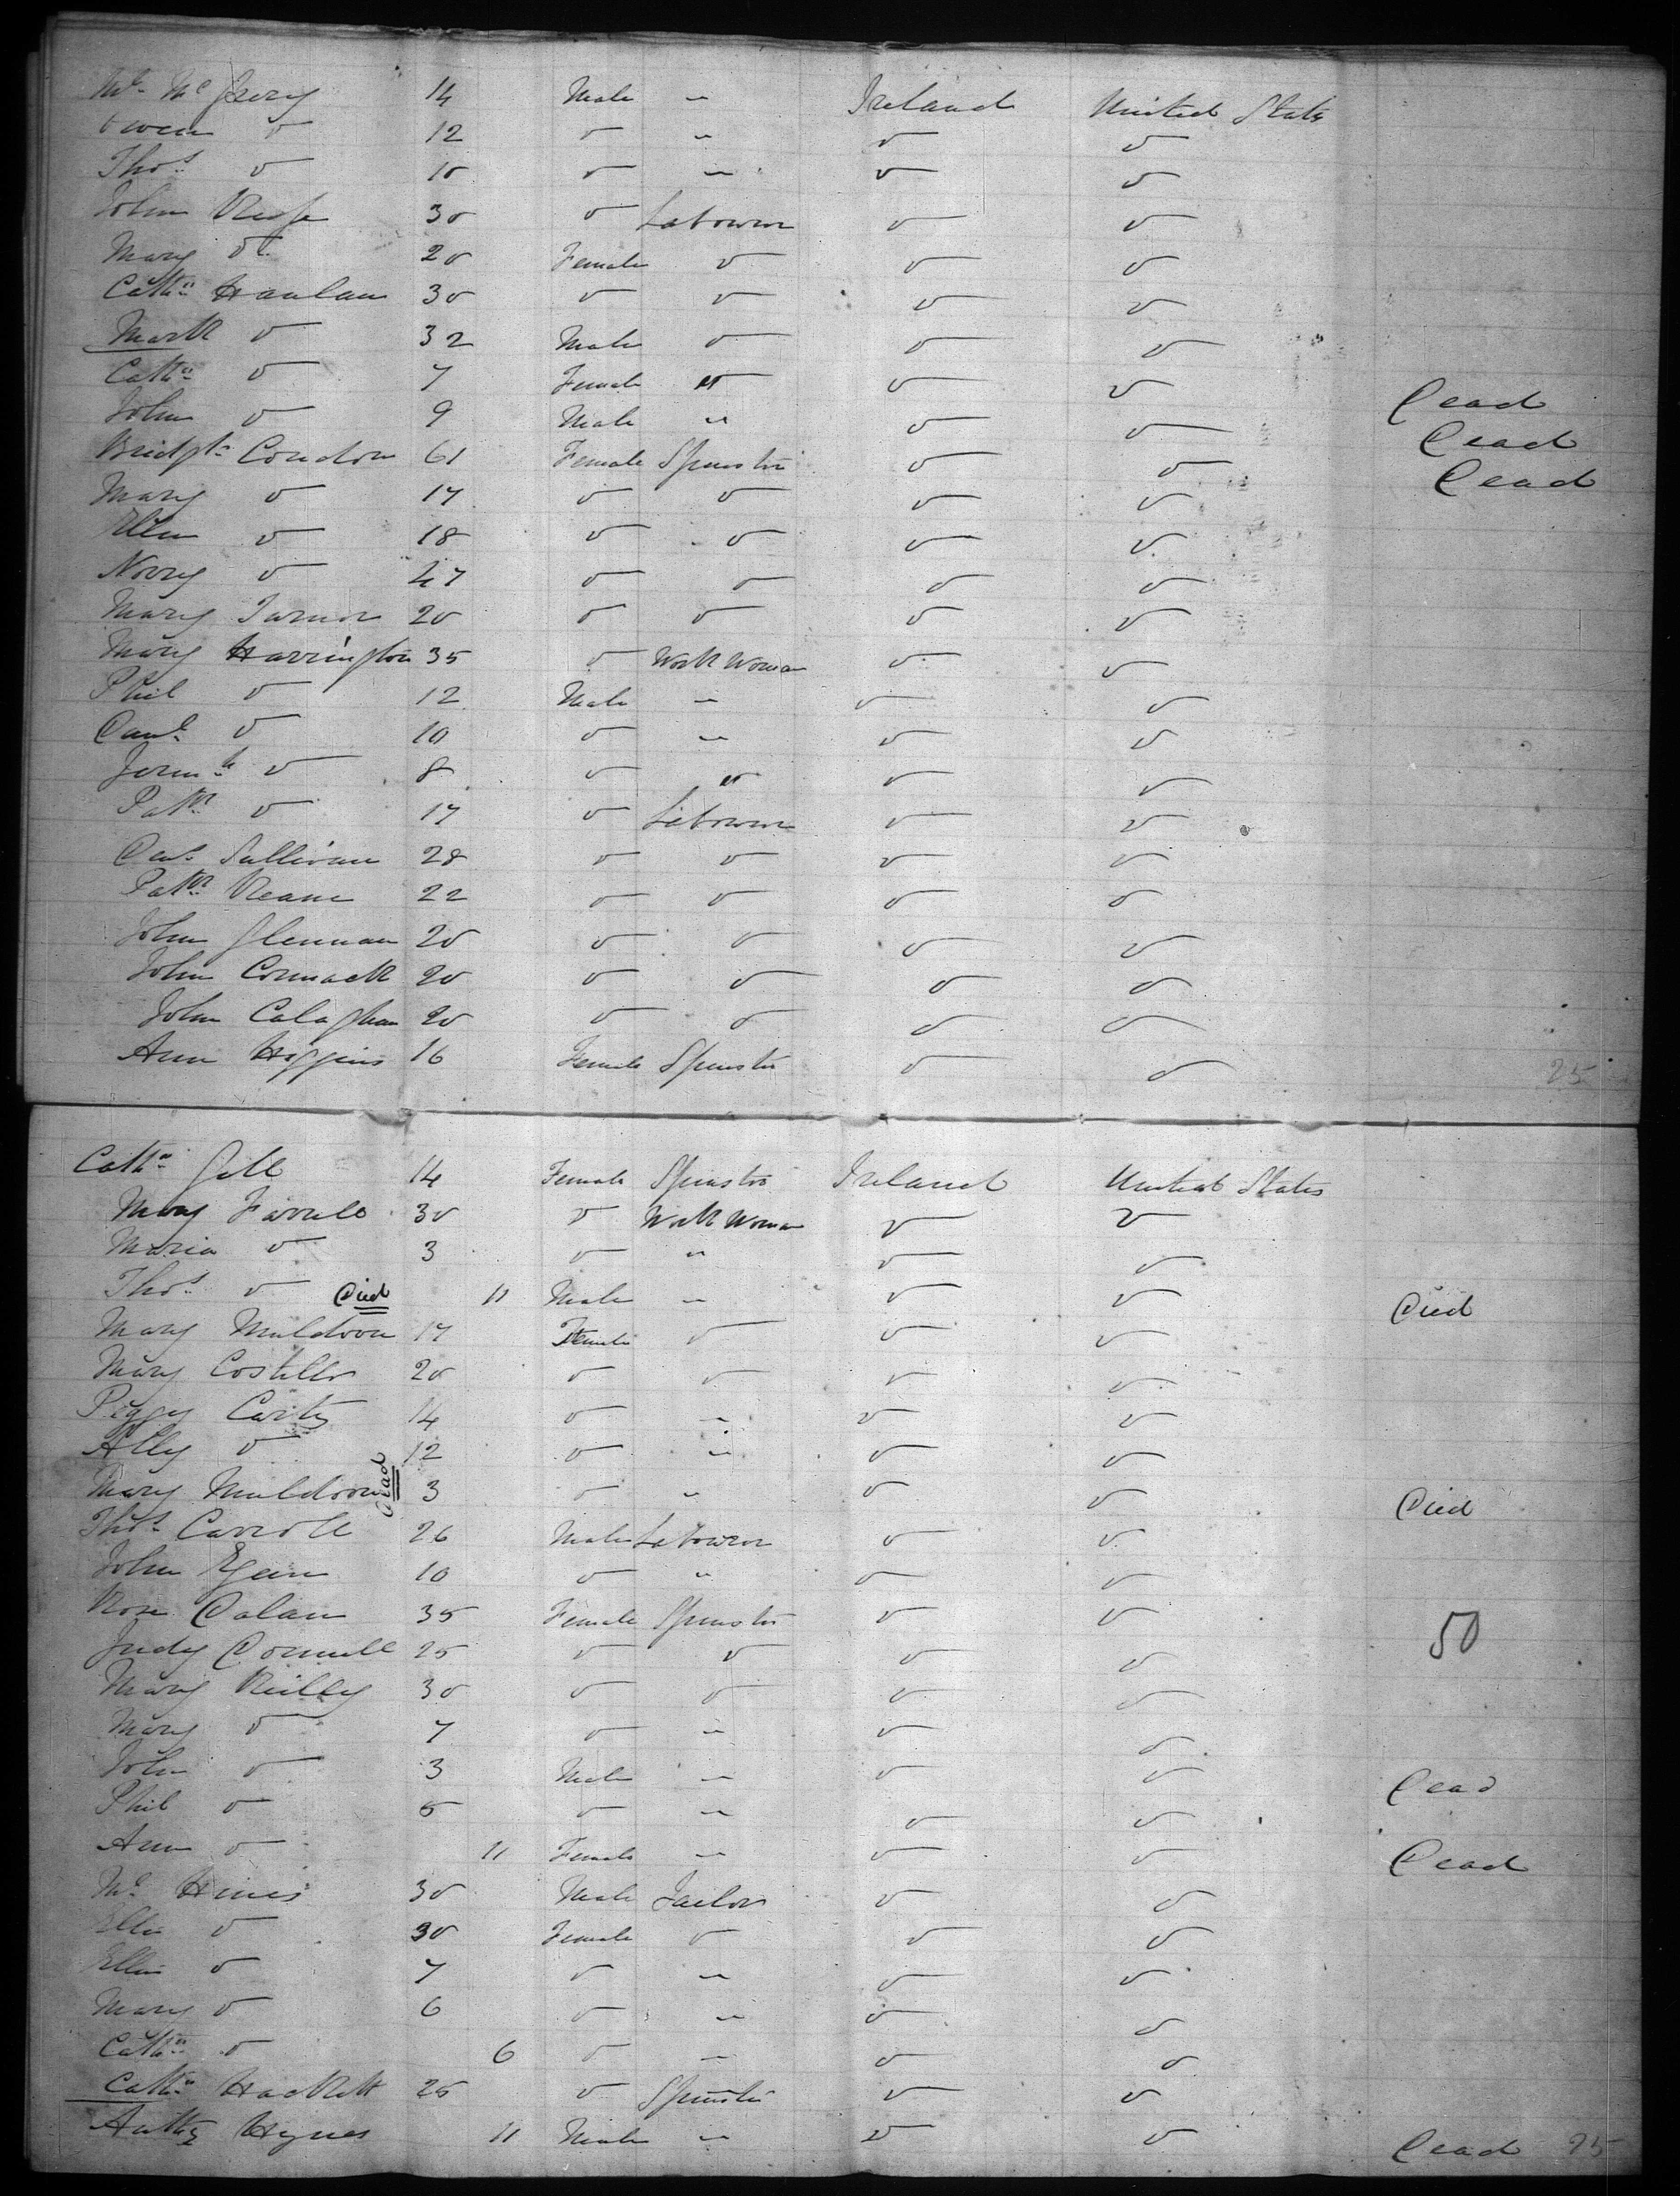 Ml. Mc Gerry 14 Male " Ireland United States
Owen do 12 do " do do
Thos. do 10 do " do do
John Rush 30 do Labourer do do
Mary do 20 Female do do do
Cathn. Hanlan 30 do do do do
Mark do 32 Male do do do
Cathn. do 7 Female " do do Dead
John do 9 Male " do do Dead
Bridgt. Condon 61 Female Spinster do do Dead
Mary do 17 do do do do
Ellen do 18 do do do do
Norry do 47 do do do do
Mary Turner 20 do do do do
Mary Harrington 35 do Work Woman do do
Phil do 12 Male " do do
Danl. do 10 do " do do
Jermh. do 8 do " do do
Patk. do 17 do Labourer do do
Danl. Sullivan 28 do do do do
Patk. Keane 22 do do do do
John Glennan 20 do do do do
John Cormack 20 do do do do
John Calaghan 20 do do do do
Ann Higgins 16 Female Spinster do do 25
Cathn. Gill 14 Female Spinster Ireland United States
Mary Farrell 30 do Work Woman do do
Maria do 3 do " do do
Thos. do Died 11 Male " do do Died
Mary Muldoon 17 Female do do do
Mary Costello 20 do do do do
Peggy Carty 14 do " do do
Ally do 12 do " do do
Mary Muldoon Dead 3 do " do do Died
Thos. Carroll 26 Male Labourer do do
John Egan 10 do " do do
Rose Dolan 35 Female Spinster do do
Judy Donnell 25 do do do do 50
Mary Reilly 30 do do do do
Mary do 7 do " do do
John do 3 Male " do do Dead
Phil do 5 do " do do
Ann do 11 Female " do do Dead
Ml. Hines 30 Male Tailor do do
Ellen do 30 Female do do do
Ellen do 7 do " do do
Mary do 6 do " do do
Cathn. do 6 do " do do
Cathn. Hackett 25 do Spinster do do
Anthy Hynes 11 Male " do do Dead 25